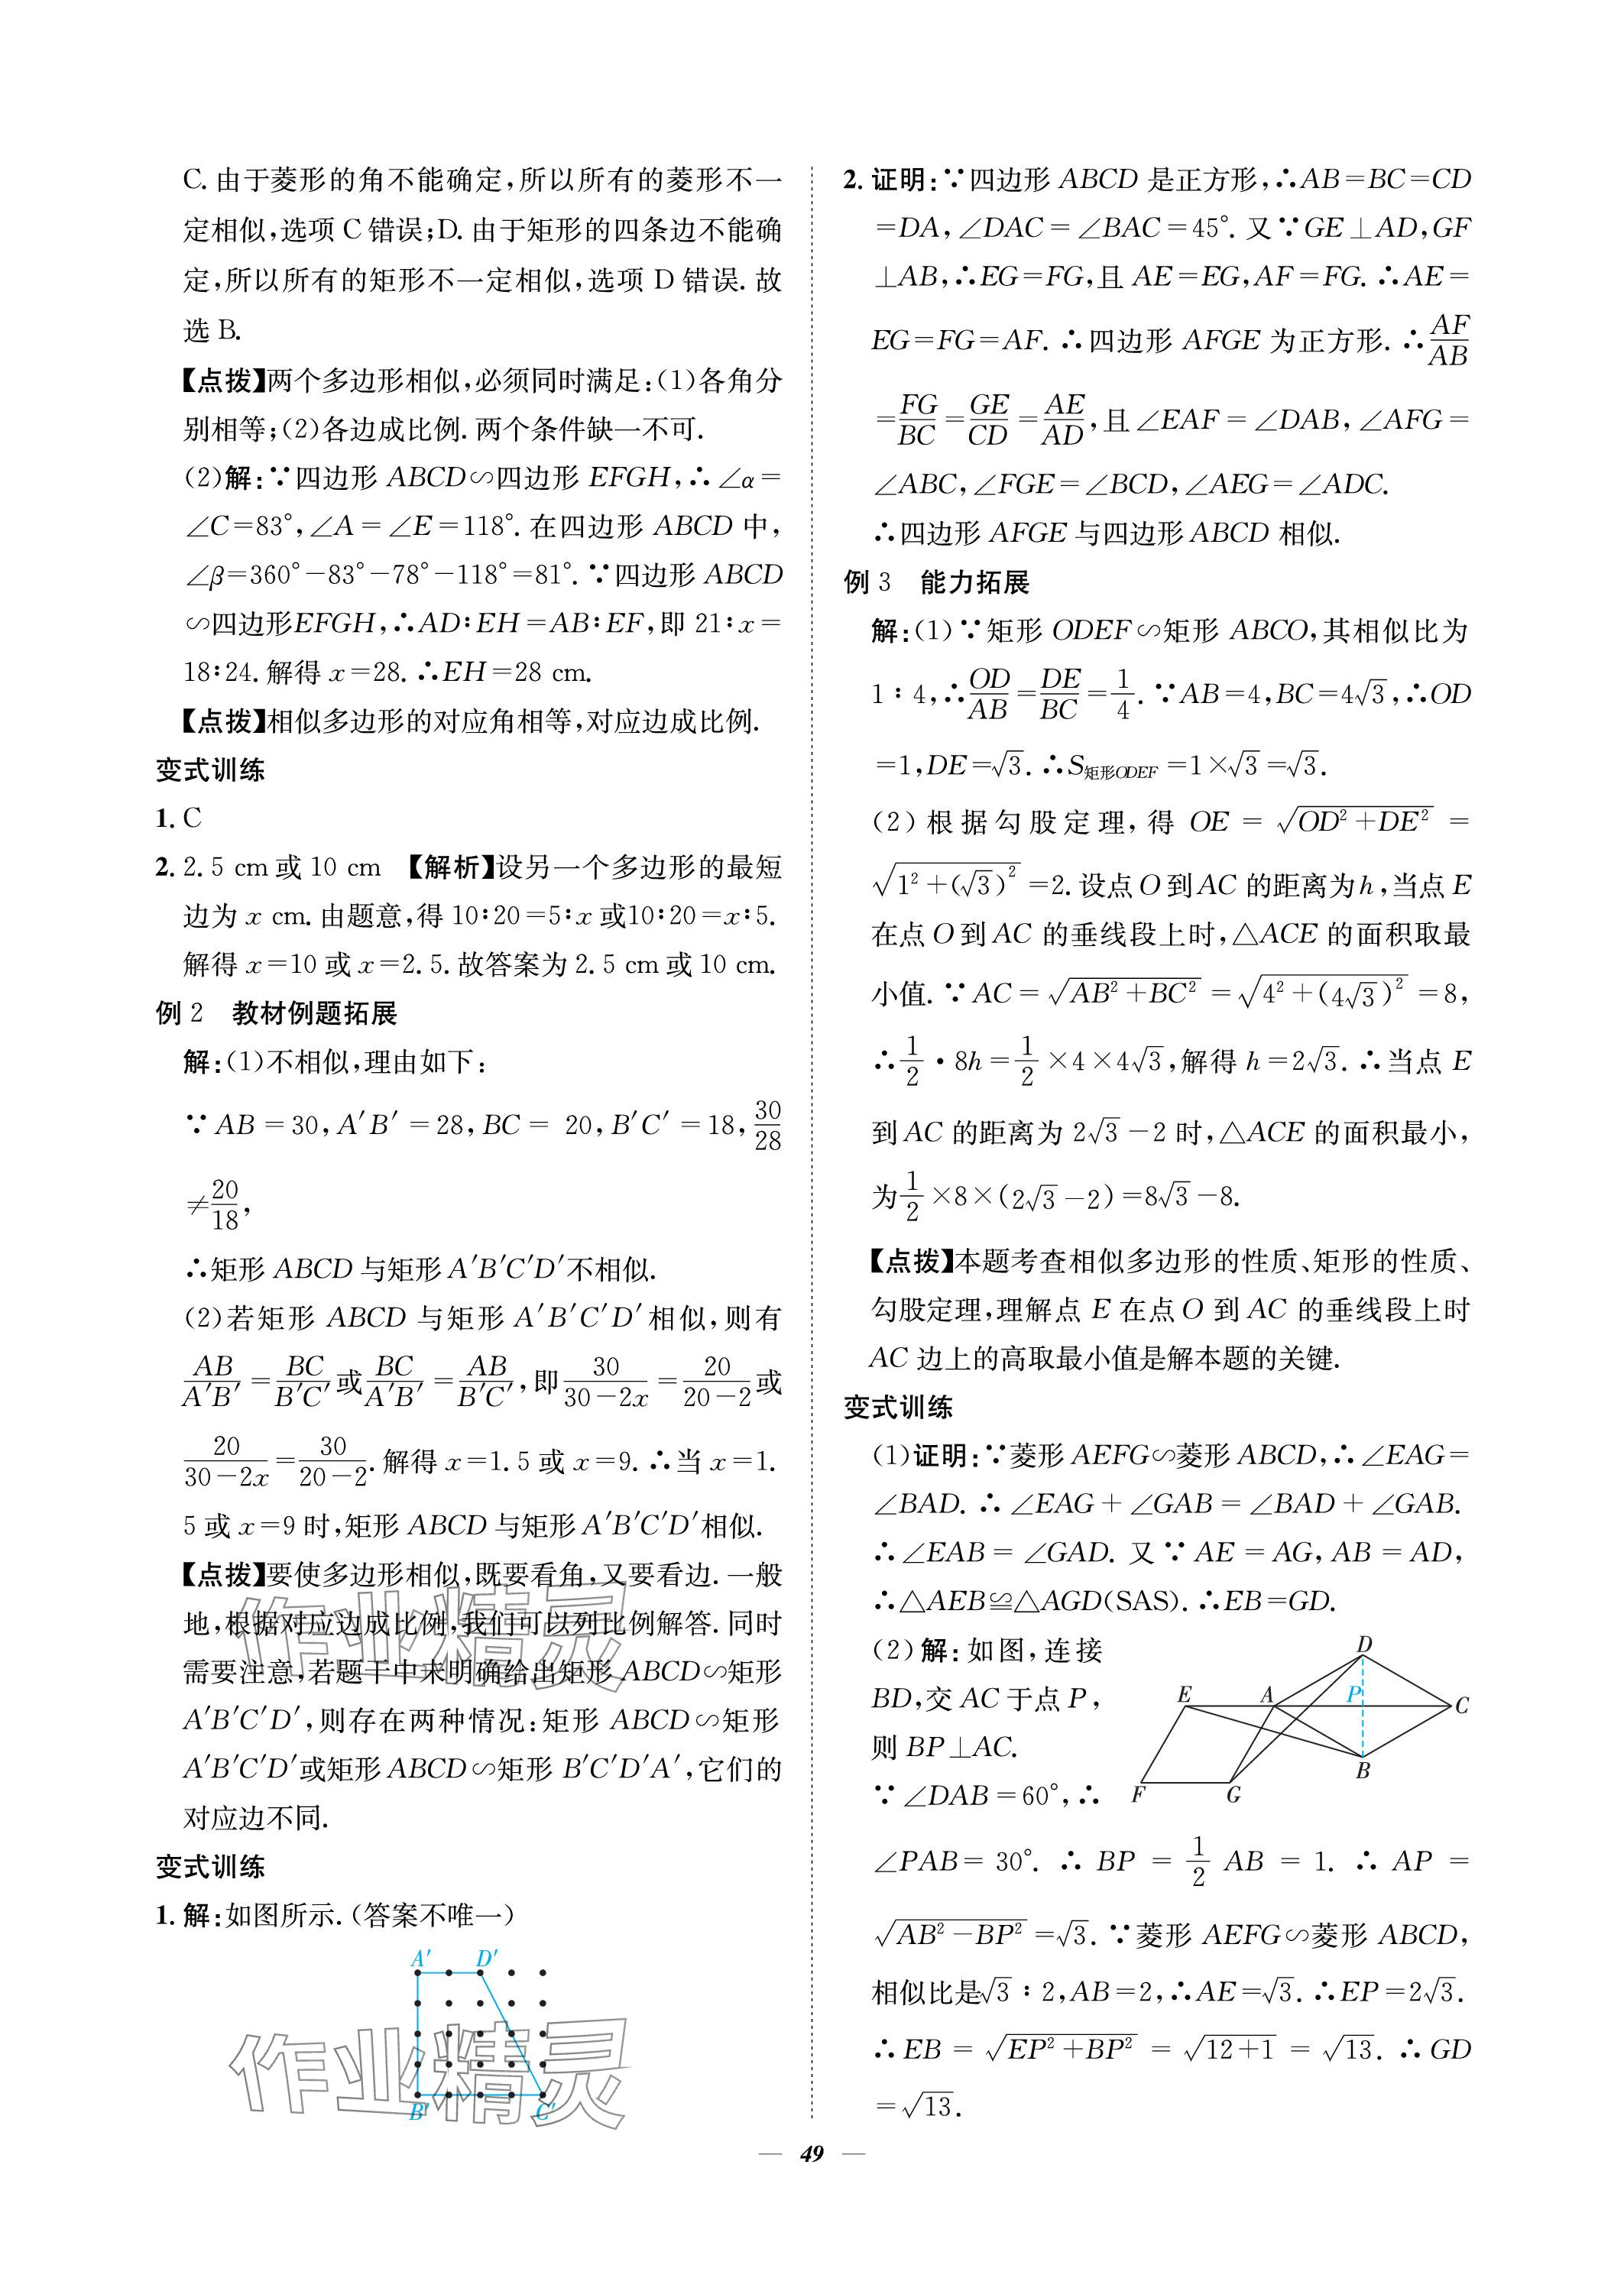 C. 由于菱形的角不能确定,所以所有的菱形不一
定相似,选项 C 错误;D. 由于矩形的四条边不能确
定,所以所有的矩形不一定相似,选项 D 错误. 故
选 B.
【点拨】两个多边形相似,必须同时满足:(1)各角分
别相等;(2)各边成比例. 两个条件缺一不可.
(2)解:∵四边形 ABCD∽四边形 EFGH,∴∠α=
∠C=83°,∠A=∠E=118°. 在四边形 ABCD 中,
∠β=360°-83°-78°-118°=81°. ∵四边形 ABCD
∽四边形EFGH,∴AD∶EH=AB∶EF,即 21∶x=
18∶24. 解得 x=28. ∴EH=28 cm.
【点拨】相似多边形的对应角相等,对应边成比例.
变式训练
1. C
2. 2.5 cm或10 cm 【解析】设另一个多边形的最短
边为 x cm. 由题意,得 10∶20=5∶x 或10∶20=x∶5.
解得 x=10 或 x=2.5. 故答案为 2.5 cm或 10 cm.
例 2 教材例题拓展
解:(1)不相似,理由如下:
∵AB=30,A′B′=28,BC= 20,B′C′=18,30/28
≠20/18,
∴矩形 ABCD 与矩形 A′B′C′D′不相似.
(2)若矩形 ABCD 与矩形 A′B′C′D′相似,则有
AB/A′B′=BC/B′C′或BC/A′B′=AB/B′C′,即30/(30-2x)=20/(20-2)或
20/(30-2x)=30/(20-2). 解得 x=1.5 或 x=9. ∴当 x=1.
5 或 x=9 时,矩形 ABCD 与矩形 A′B′C′D′相似.
【点拨】要使多边形相似,既要看角,又要看边. 一般
地,根据对应边成比例,我们可以列比例解答. 同时
需要注意,若题干中未明确给出矩形 ABCD∽矩形
A′B′C′D′,则存在两种情况:矩形 ABCD∽矩形
A′B′C′D′或矩形 ABCD∽矩形 B′C′D′A′,它们的
对应边不同.
变式训练
1. 解:如图所示.(答案不唯一)
A′ D′
B′ C′
2. 证明:∵四边形 ABCD 是正方形,∴AB=BC=CD
=DA,∠DAC=∠BAC=45°. 又∵GE⊥AD,GF
⊥AB,∴EG=FG,且 AE=EG,AF=FG. ∴AE=
EG=FG=AF. ∴四边形 AFGE 为正方形. ∴AF/AB
=FG/BC=GE/CD=AE/AD,且∠EAF=∠DAB,∠AFG=
∠ABC,∠FGE=∠BCD,∠AEG=∠ADC.
∴四边形 AFGE 与四边形 ABCD 相似.
例 3 能力拓展
解:(1)∵矩形 ODEF∽矩形 ABCO,其相似比为
1∶4,∴OD/AB=DE/BC=1/4. ∵AB=4,BC=4√3,∴OD
=1,DE=√3. ∴S矩形ODEF=1×√3=√3.
(2)根据勾股定理,得 OE=√(OD²+DE²)=
√(1²+(√3)²)=2. 设点 O 到 AC 的距离为 h,当点 E
在点 O 到 AC 的垂线段上时,△ACE 的面积取最
小值. ∵AC=√(AB²+BC²)=√(4²+(4√3)²)=8,
∴1/2·8h=1/2×4×4√3,解得 h=2√3. ∴当点 E
到 AC 的距离为 2√3-2 时,△ACE 的面积最小,
为1/2×8×(2√3-2)=8√3-8.
【点拨】本题考查相似多边形的性质、矩形的性质、
勾股定理,理解点 E 在点 O 到 AC 的垂线段上时
AC 边上的高取最小值是解本题的关键.
变式训练
(1)证明:∵菱形 AEFG∽菱形 ABCD,∴∠EAG=
∠BAD. ∴∠EAG+∠GAB=∠BAD+∠GAB.
∴∠EAB=∠GAD. 又∵AE=AG,AB=AD,
∴△AEB≌△AGD(SAS). ∴EB=GD.
(2)解:如图,连接
BD,交 AC 于点 P,
则 BP⊥AC.
∵∠DAB=60°,∴
D
E A P C
B
F G
∠PAB=30°. ∴BP=1/2AB=1. ∴AP=
√(AB²-BP²)=√3. ∵菱形 AEFG∽菱形 ABCD,
相似比是√3∶2,AB=2,∴AE=√3. ∴EP=2√3.
∴EB=√(EP²+BP²)=√(12+1)=√13. ∴GD
=√13.
作业精灵
作业精灵
— 49 —